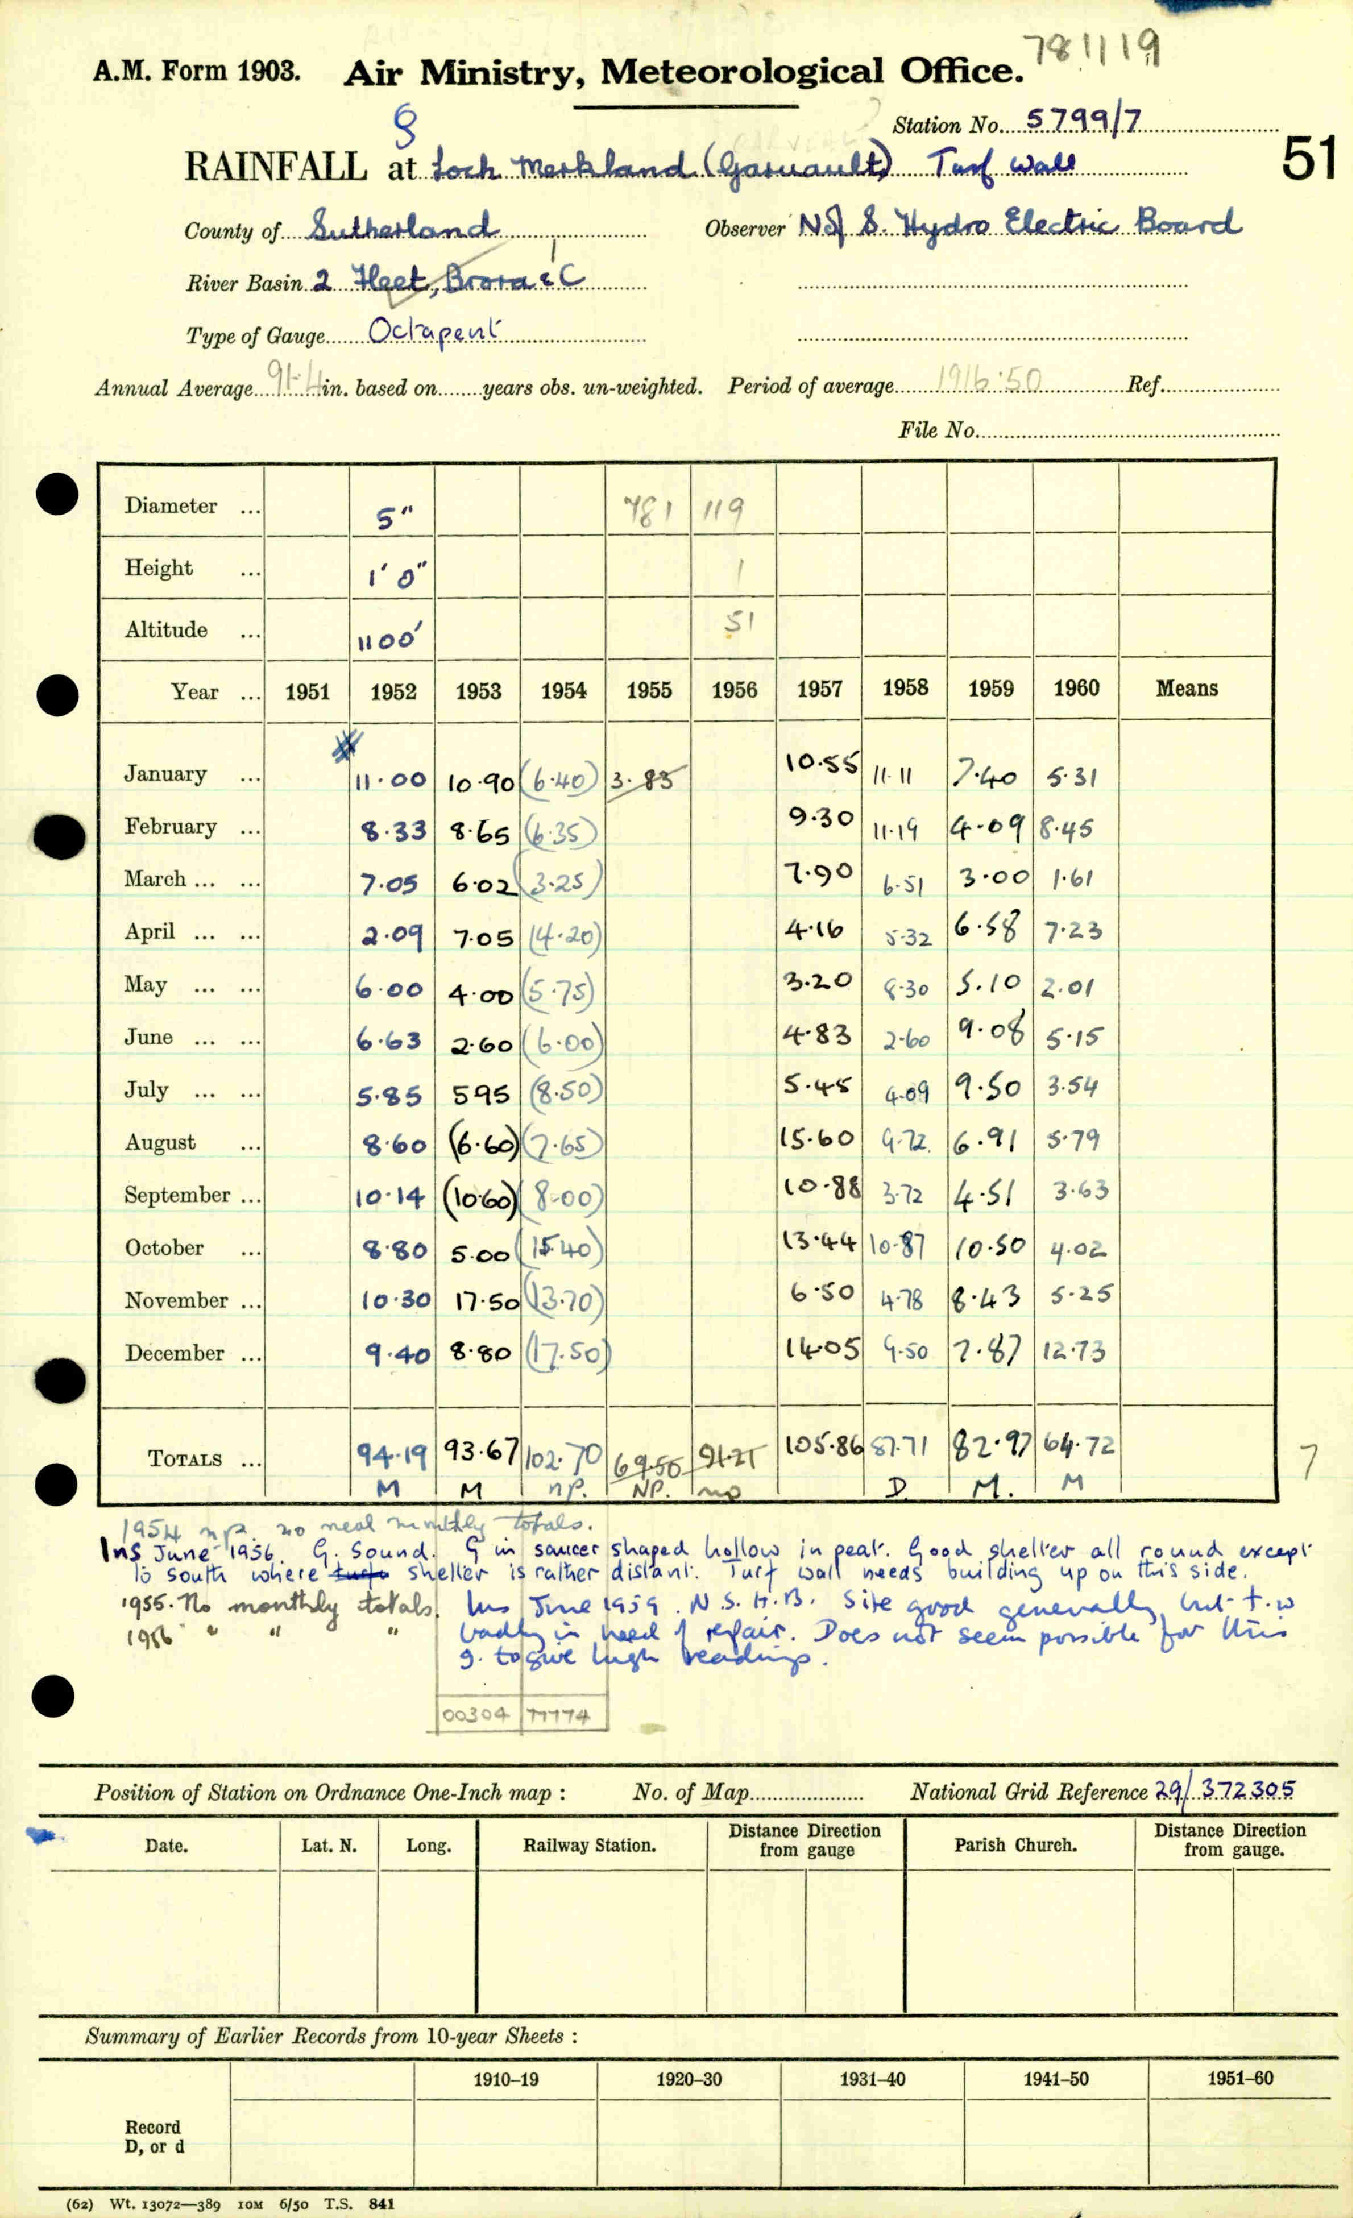 781119
A.M. Form 1903. Air Ministry, Meteorological Office.
§
Station No. 5799/7
51
RAINFALL at Loch Merkland (Garvault) Turf Wall
County of Sutherland Observer N of S. Hydro Electric Board
River Basin 2 Fleet, Brora & C
Type of Gauge Octapent
Annual Average 91.4 in. based on years obs. un-weighted. Period of average 1916-50 Ref.
File No.
Diameter ... 5" 781 119
Height ... 1' 0" 1
Altitude ... 1100' 51
Year ... 1951 1952 1953 1954 1955 1956 1957 1958 1959 1960 Means
January ... 11.00 10.90 (6.40) 3.85 10.55 11.11 7.40 5.31
February ... 8.33 8.65 (6.35) 9.30 11.19 4.09 8.45
March ... ... 7.05 6.02 (3.25) 7.90 6.51 3.00 1.61
April ... ... 2.09 7.05 (4.20) 4.16 5.32 6.58 7.23
May ... ... 6.00 4.00 (5.75) 3.20 8.30 5.10 2.01
June ... ... 6.63 2.60 (6.00) 4.83 2.60 9.08 5.15
July ... ... 5.85 5.95 (8.50) 5.45 4.09 9.50 3.54
August ... 8.60 (6.60) (7.65) 15.60 9.72 6.91 5.79
September ... 10.14 (10.60) (8.00) 10.88 3.72 4.51 3.63
October ... 8.80 5.00 (15.40) 13.44 10.87 10.50 4.02
November ... 10.30 17.50 (13.70) 6.50 4.78 8.43 5.25
December ... 9.40 8.80 (17.50) 14.05 9.50 7.87 12.73
TOTALS ... 94.19 93.67 102.70 69.55 91.21 105.86 87.71 82.97 64.72
M M np. NP. np D. M. M
7
1954 np. no neal monthly totals.
Ins June 1956. G. Sound. G in saucer shaped hollow in peat. Good shelter all round except
to south where shelter is rather distant. Turf wall needs building up on this side.
1955. No monthly totals. Ins June 1959. N.S.H.B. Site good generally, but t.w
1956 " " " badly in need of repair. Does not seem possible for this
g. to give high readings.
00304 77774
Position of Station on Ordnance One-Inch map : No. of Map National Grid Reference 29/372305
Date. Lat. N. Long. Railway Station. Distance Direction from gauge Parish Church. Distance Direction from gauge.
Summary of Earlier Records from 10-year Sheets :
1910–19 1920–30 1931–40 1941–50 1951–60
Record
D, or d
(62) Wt. 13072—389 10M 6/50 T.S. 841